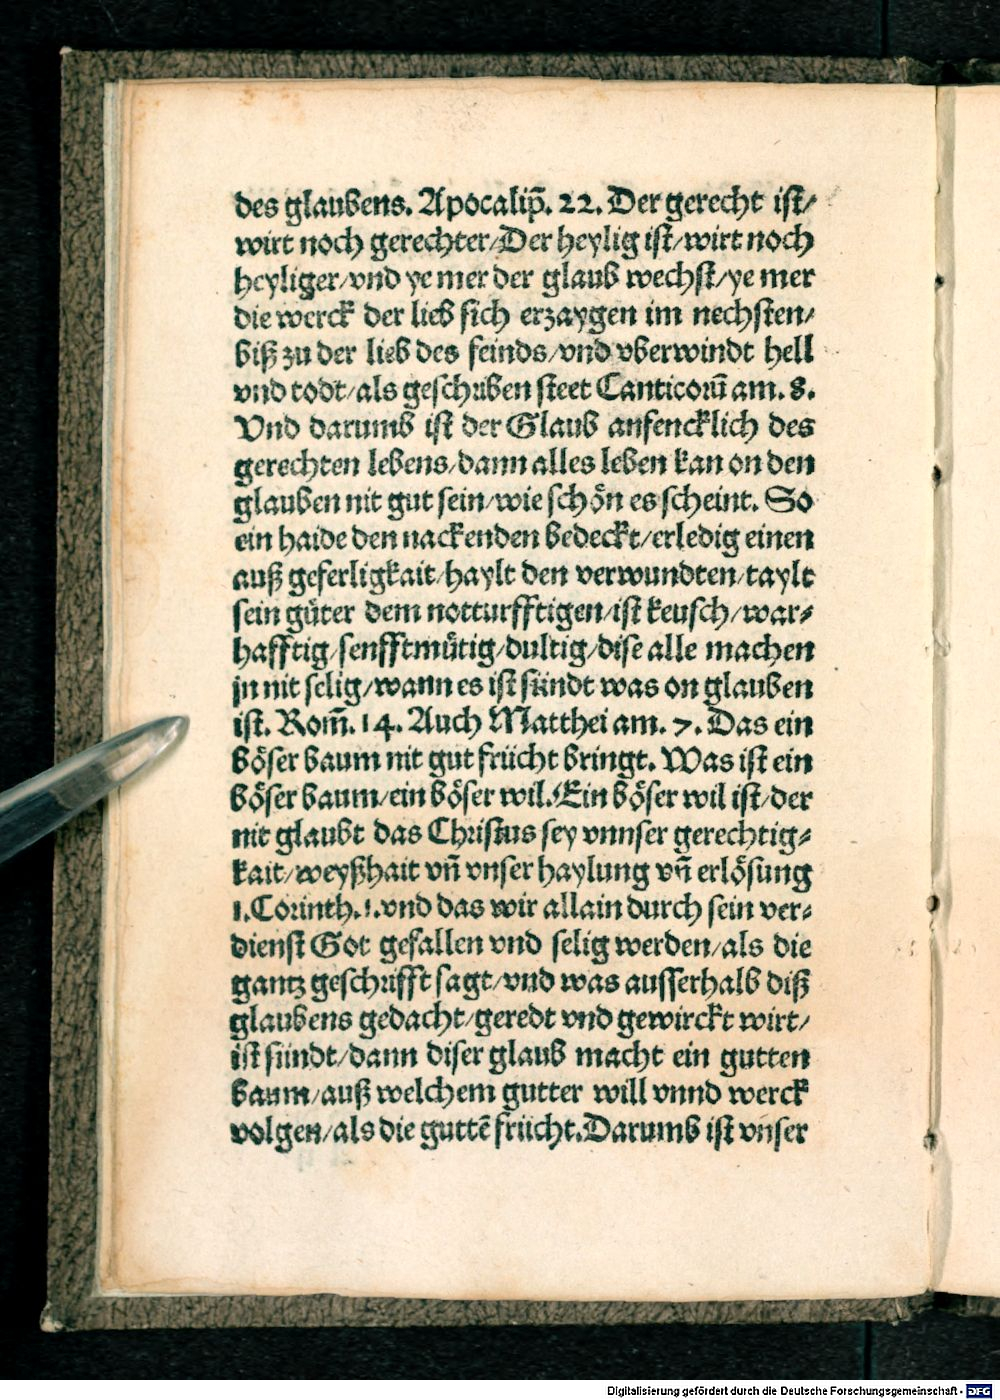 des glaubens. Apocalip̄. 22. Der gerecht ist/
wirt noch gerechter/Der heylig ist/wirt noch
heyliger/vnd ye mer der glaub wechst/ye mer
die werck der lieb sich erzaygen im nechsten/
biß zu der lieb des feinds/vnd vberwindt hell
vnd todt/als geschriben steet Canticorū am. 8.
Vnd darumb ist der Glaub anfencklich des
gerechten lebens/dann alles leben kan on den
glauben nit gut sein/wie schön es scheint. So
ein haide den nackenden bedeckt/erledig einen
auß geferligkait/haylt den verwundten/taylt
sein gůter dem notturfftigen/ist keusch/war⸗
hafftig/senfftmůtig/dultig/dise alle machen
jn nit selig/wann es ist sündt was on glauben
ist. Rom̄. 14. Auch Matthei am. 7. Das ein
böser baum nit gut frücht bringt. Was ist ein
böser baum/ein böser wil. Ein böser wil ist/der
nit glaubt das Christus sey vnnser gerechtig⸗
kait/weyßhait vn̄ vnser haylung vn̄ erlösung
1. Corinth. 1. vnd das wir allain durch sein ver⸗
dienst Got gefallen vnd selig werden/als die
gantz geschrifft sagt/vnd was ausserhalb diß
glaubens gedacht/geredt vnd gewirckt wirt/
ist sündt/dann diser glaub macht ein gutten
baum/auß welchem gutter will vnnd werck
volgen/als die guttē frücht. Darumb ist vnser
Digitalisierung gefördert durch die Deutsche Forschungsgemeinschaft - DFG